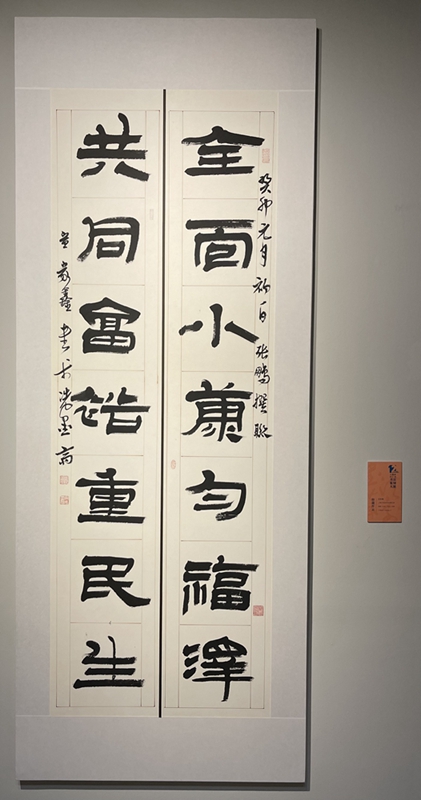 全面小康匀福澤
癸卯元月初日 张鹏撰联
共同富裕重民生
鑫书于墨斋